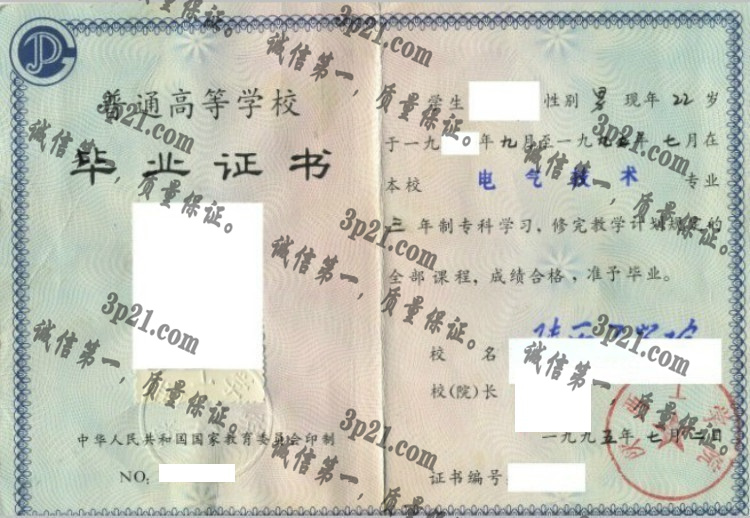 普通高等学校
毕业证书
中华人民共和国国家教育委员会印制
NO:
学生 性别 男 现年 22 岁
于一九 年九月至一九九五年 七月在
本校 电气技术 专业
三年制专科学习，修完教学计划规定的
全部课程，成绩合格，准予毕业。
校 名
校(院)长
一九九五年 七月 二日
证书编号:
3p21.com
诚信第一，质量保证。
3p21.com
诚信第一，质量保证。
3p21.com
诚信第一，质量保证。
3p21.com
诚信第一，质量保证。
3p21.com
诚信第一，质量保证。
3p21.com
诚信第一，质量保证。
3p21.com
诚信第一，质量